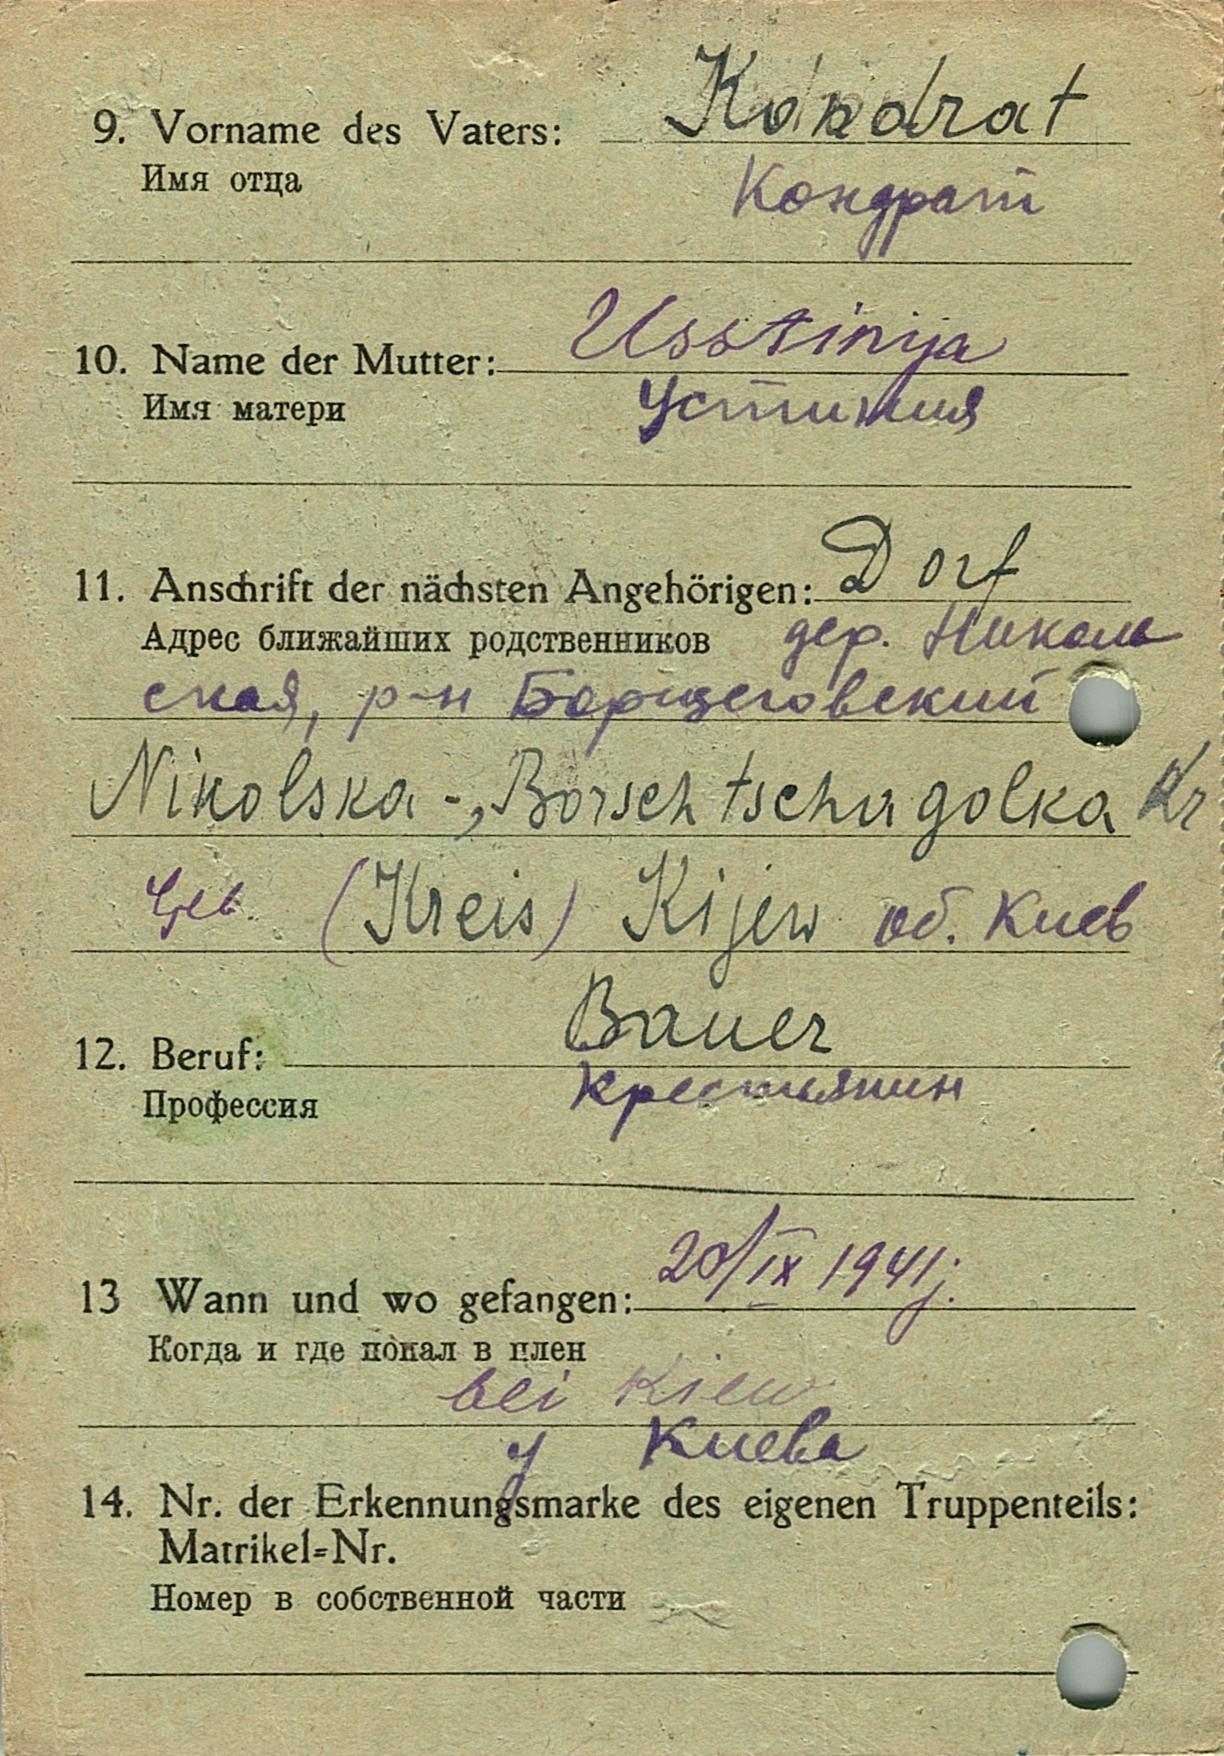 9. Vorname des Vaters: Kondrat
Имя отца Кондрат
10. Name der Mutter: Usstinija
Имя матери Устиния
11. Anschrift der nächsten Angehörigen: Dorf
Адрес ближайших родственников дер. Николь
ская, р-н Борщеговский
Nikolska-, Borschtschagolka Kr
Geb. (Kreis) Kijew об. Киев
12. Beruf: Bauer
Профессия крестьянин
13 Wann und wo gefangen: 20/IX 1941j.
Когда и где попал в плен
bei Kiew
у Киева
14. Nr. der Erkennungsmarke des eigenen Truppenteils:
Matrikel=Nr.
Номер в собственной части